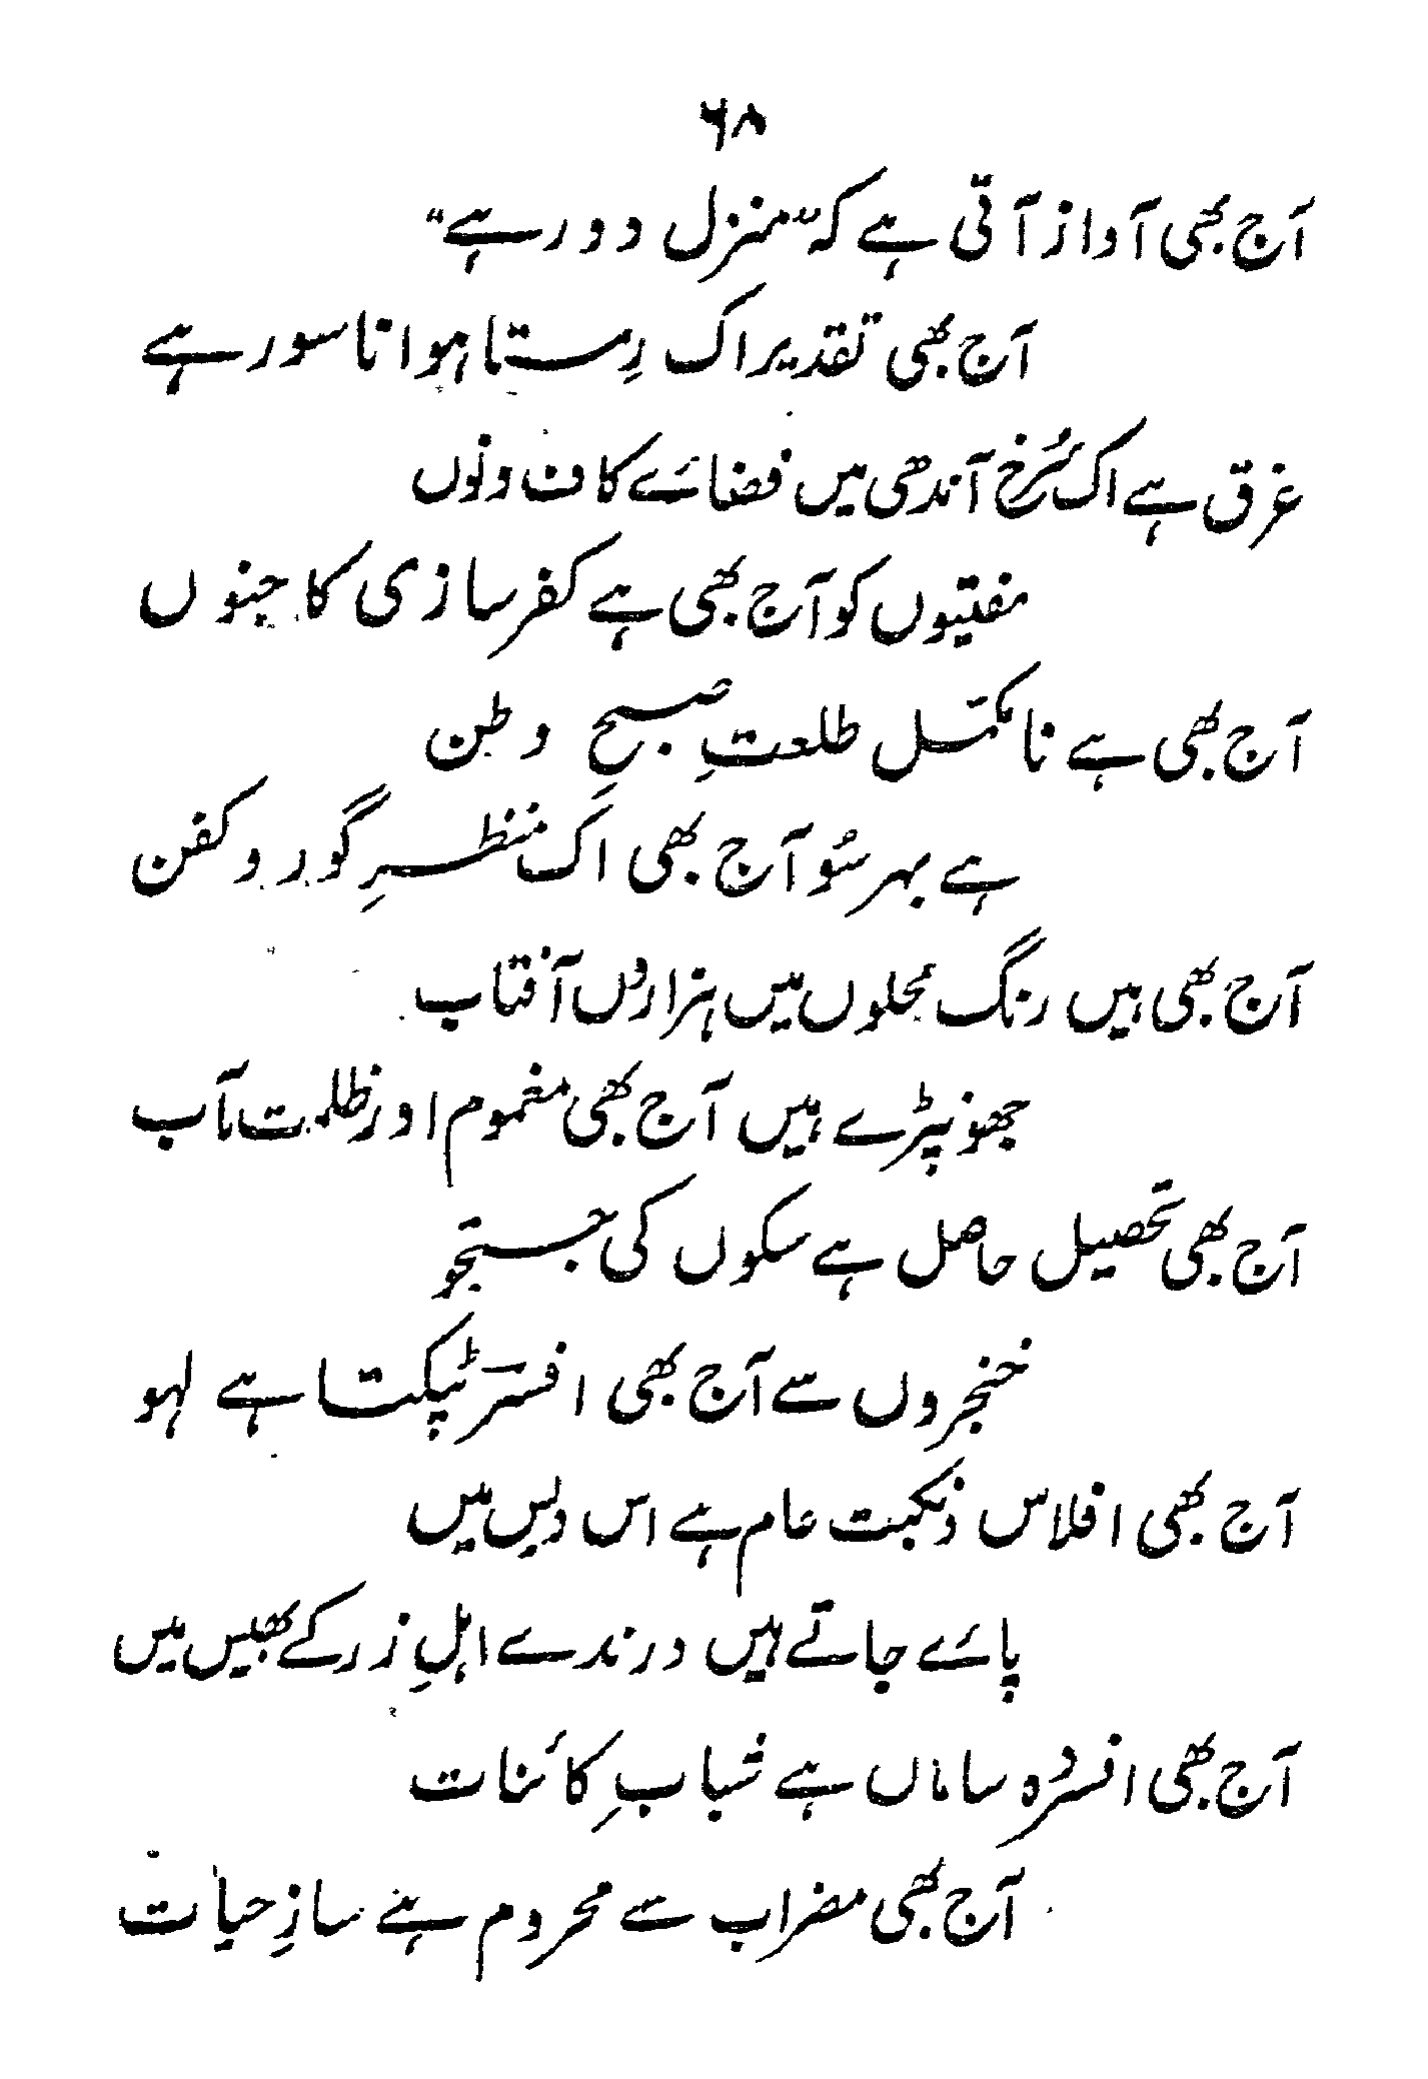 ۶۸
آج بھی آواز آتی ہے کہ "منزل دور ہے"
آج بھی تقدیر اک رِستا ہوا ناسور ہے
غرق ہے اک سُرخ آندھی میں فضائے کاف و نوں
مفتیوں کو آج بھی ہے کفر سازی کا جنوں
آج بھی ہے نامکمّل طلعتِ صبحِ وطن
ہے بہر سُو آج بھی اک منظرِ گور و کفن
آج بھی ہیں رنگ محلوں میں ہزاروں آفتاب
جھونپڑے ہیں آج بھی مغموم اور ظلمت مآب
آج بھی تحصیل حاصل ہے سکوں کی جستجو
خنجروں سے آج بھی افسرؔ ٹپکتا ہے لہو
آج بھی افلاس و نکبت عام ہے اس دیس میں
پائے جاتے ہیں درندے اہلِ زر کے بھیس میں
آج بھی افسردہ ساماں ہے شبابِ کائنات
آج بھی مضراب سے محروم ہے سازِ حیات